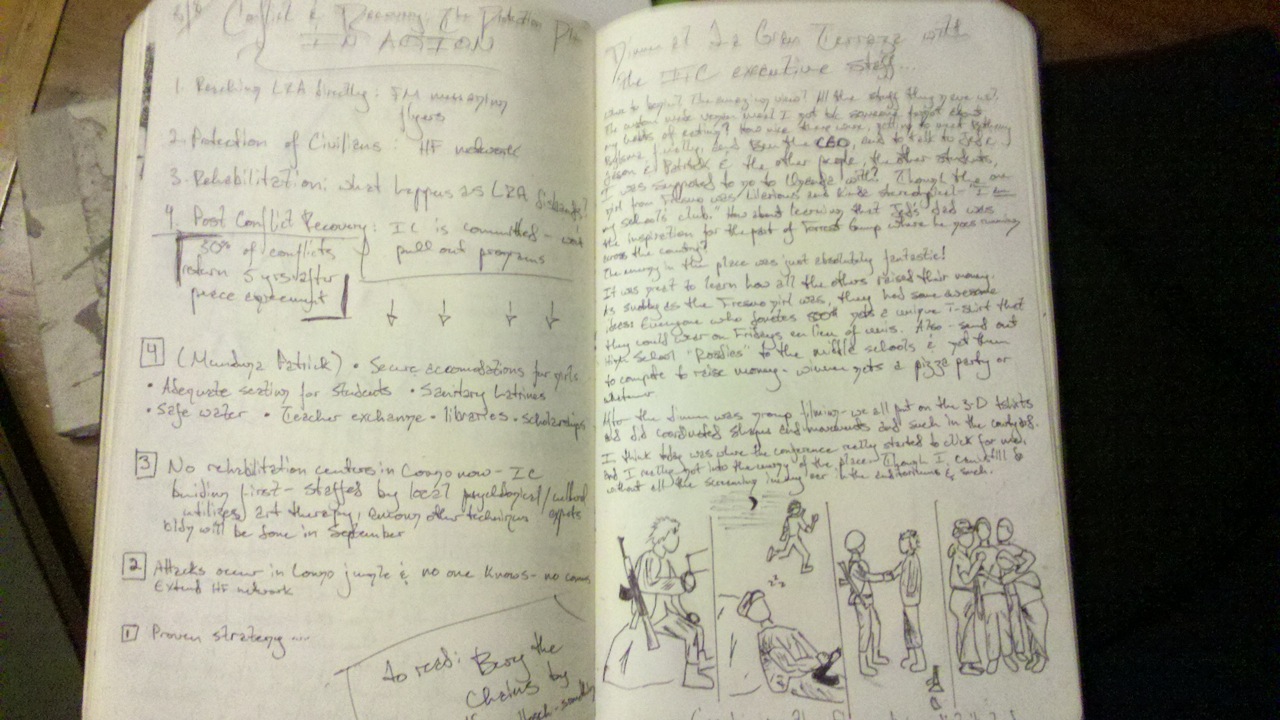 Conflict & Recovery: The Protection Plan
IN ACTION
1. Reaching LRA directly: FM messaging
flyers
2. Protection of Civilians: HF network
3. Rehabilitation: what happens as LRA disbands?
4. Post Conflict Recovery: IC is committed - won't
pull out programs
30% of conflicts
return 5 yrs after
peace agreement
4 (Munduga Patrick) • Secure accomodations for girls
• Adequate seating for students • Sanitary Latrines
• Safe water • Teacher exchange • libraries • scholarships
3 No rehabilitation centers in Congo now - IC
building first - staffed by local psychological/cultural
utilizes art therapy, among other techniques experts
bldg will be done in September
2 Attacks occur in Congo jungle & no one knows - no comms
Extend HF network
1 Proven strategy...
to read: Bury the
Chains by
Dinner at La Gran Terraza with
the IC executive staff...
Where to begin? The amazing view? All the stuff they gave us?
The custom made vegan meal I got bc someone forgot about
my habits of eating? How nice there were, getting to meet
finally, and Ben the CEO, and to talk to
Jason & Patrick & the other people, the other students,
I was supposed to go to Uganda with? Though the one
girl from Fresno was hilarious and kinda stereotypical - "I am
my school's club." How about learning that Jed's dad was
the inspiration for the part of Forrest Gump where he goes running
across the country?
The energy in the place was just absolutely fantastic!
It was great to learn how all the others raised their money.
As snobby as the Fresno girl was, they had some awesome
ideas: Everyone who donates gets a unique T-shirt that
they could wear on Fridays en lieu of unis. Also - send out
High School "Roadies" to the middle schools & get them
to compete to raise money - winner gets a pizza party or
whatever
After the dinner was group filming - we all put on the 3-D tshirts
and did coordinated shapes and movements and such in the courtyard.
I think today was where the conference really started to click for me,
and I really got into the energy of the place. Though I could still do
without all the screaming in the auditoriums & such.
zzz